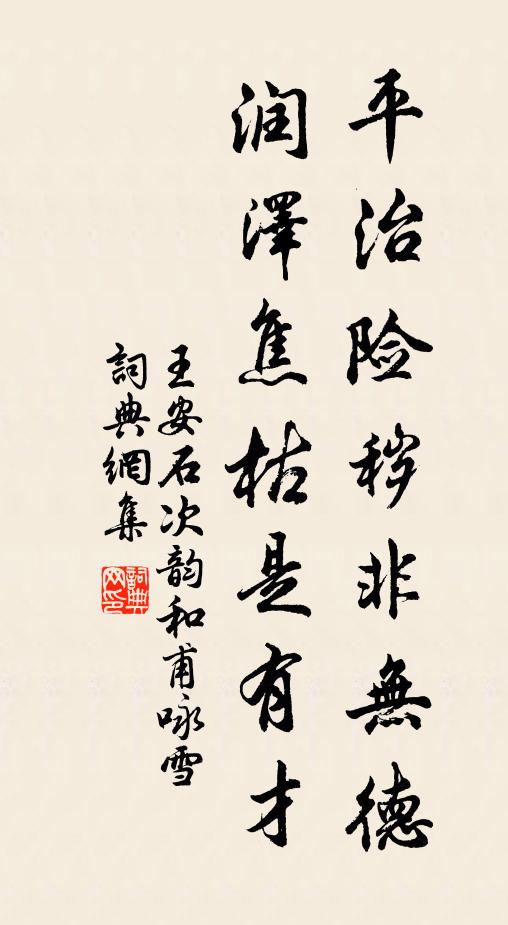 平治险秽非無德
润澤焦枯是有才
王安石次韵和甫咏雪
詞典網集
詞典網印